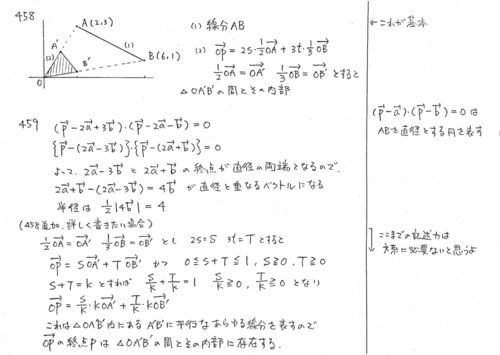 458
A(2,3)
(1) 線分AB
←これが基本
A'
(1)
(2)
B(6,1)
B'
O
(2) OP→ = 2s・1/2 OA→ + 3t・1/3 OB→
1/2 OA→ = OA'→ 1/3 OB→ = OB'→ とすると
△OA'B'の周とその内部
459
(p→-2a→+3b→)・(p→-2a→-b→)=0
{p→-(2a→-3b→)}・{p→-(2a→+b→)}=0
よって、2a→-3b→ と 2a→+b→ の終点が直径の両端となるので、
2a→+b→-(2a→-3b→)=4b→ が直径と重なるベクトルになる
半径は 1/2|4b→|=4
(p→-a→)・(p→-b→)=0は
ABを直径とする円を表す
(458追加、詳しく書きたい場合)
1/2 OA→ = OA'→ 1/3 OB→ = OB'→ とし 2s=S 3t=T とすると
OP→ = SOA'→ + TOB'→ かつ 0≦S+T≦1, S≧0, T≧0
S+T=k とすれば S/k + T/k = 1 S/k≧0, T/k≧0 となり
OP→ = S/k・kOA'→ + T/k・kOB'→
これは△OA'B'内にあるA'B'に平行なあらゆる線分を表すので
OP→の終点Pは△OA'B'の周とその内部に存在する.
ここまでの記述力は
文系に必要ないと思うよ